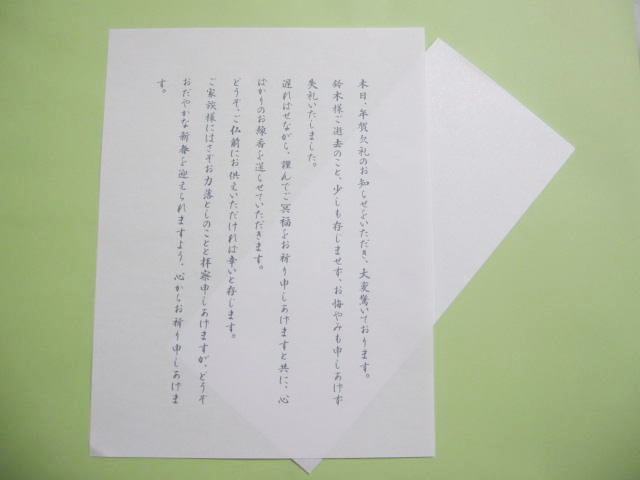 本日、年賀欠礼のお知らせをいただき、大変驚いております。
鈴木様ご逝去のこと、少しも存じませず、お悔やみも申しあげず
失礼いたしました。
遅ればせながら、謹んでご冥福をお祈り申しあげますと共に、心
ばかりのお線香を送らせていただきます。
どうぞ、ご仏前にお供えいただければ幸いと存じます。
ご家族様にはさぞお力落としのことと拝察申しあげますが、どうぞ
おだやかな新春を迎えられますよう、心からお祈り申しあげま
す。